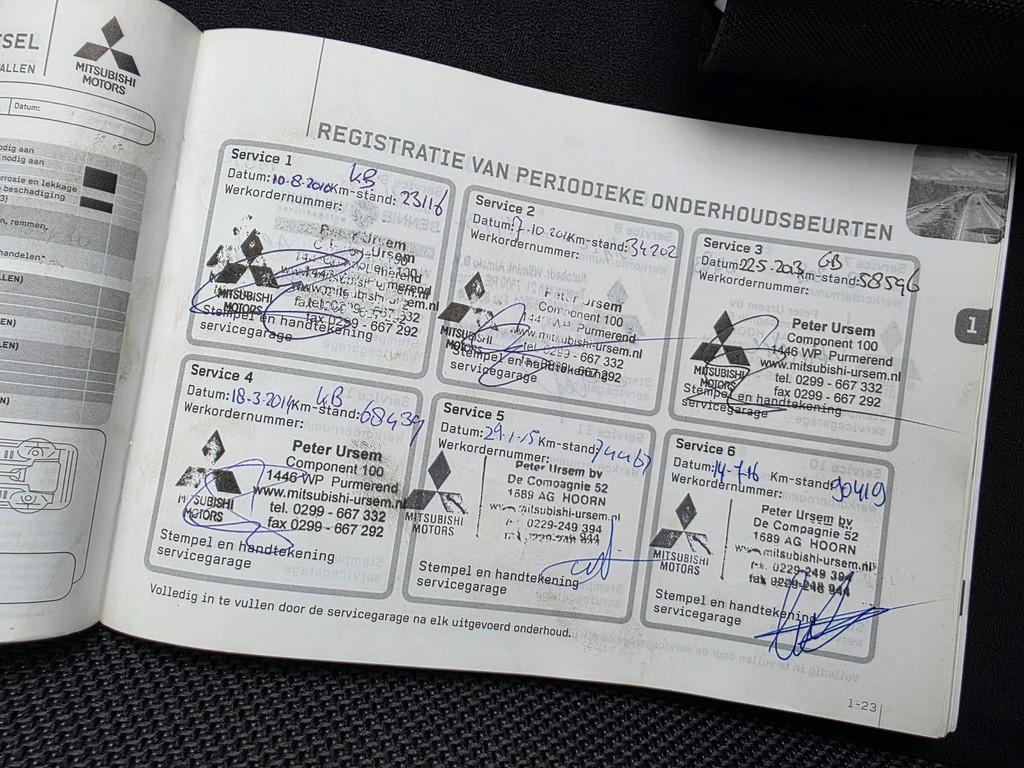 SEL
ALLEN
MITSUBISHI
MOTORS
Datum:
odig aan
nodig aan
rrosie en lekkage
e beschadiging
n, remmen,
handelen"
REGISTRATIE VAN PERIODIEKE ONDERHOUDSBEURTEN
1
Service 1
KB
Datum: 10-8-2010 Km-stand: 23116
Werkordernummer:
Peter Ursem
MITSUBISHI
MOTORS
fax 0299 - 667 292
Stempel en handtekening
servicegarage
Service 2
Km-stand: 34202
Werkordernummer:
Peter Ursem
Component 100
1446 WP Purmerend
www.mitsubishi-ursem.nl
tel. 0299 - 667 332
MITSUBISHI
MOTORS
Stempel en handtekening
servicegarage
Service 3
GB
Datum: 22.5.2013 Km-stand: 58596
Werkordernummer:
Peter Ursem
Component 100
1446 WP Purmerend
www.mitsubishi-ursem.nl
tel. 0299 - 667 332
fax 0299 - 667 292
MITSUBISHI
MOTORS
Stempel en handtekening
servicegarage
Service 4
KB
Datum: 18-3-2014 Km-stand: 68439
Werkordernummer:
Peter Ursem
Component 100
1446 WP Purmerend
www.mitsubishi-ursem.nl
tel. 0299 - 667 332
fax 0299 - 667 292
MITSUBISHI
MOTORS
Stempel en handtekening
servicegarage
Service 5
Datum: 29.1.15 Km-stand: 74467
Werkordernummer:
Peter Ursem bv
De Compagnie 52
1689 AG HOORN
www.mitsubishi-ursem.nl
0229-249 394
MITSUBISHI
MOTORS
Stempel en handtekening
servicegarage
Service 6
Datum: 14-7-16 Km-stand: 90419
Werkordernummer:
Peter Ursem bv
De Compagnie 52
1689 AG HOORN
www.mitsubishi-ursem.nl
tel. 0229-249 394
fax 0229-248 944
MITSUBISHI
MOTORS
Stempel en handtekening
servicegarage
Volledig in te vullen door de servicegarage na elk uitgevoerd onderhoud.
1-23